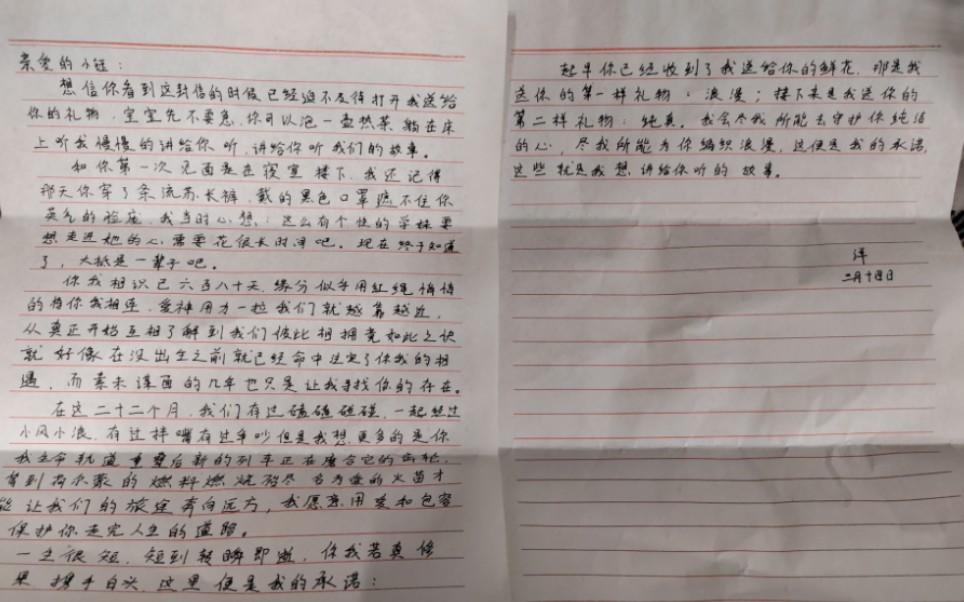 亲爱的小钰：
想信你看到这封信的时候已经迫不及待打开我送给
你的礼物，宝宝先不要急，你可以泡一壶热茶躺在床
上听我慢慢的讲给你听，讲给你听我们的故事。
和你第一次见面是在寝室楼下，我还记得
那天你穿了条流苏长裤，戴的黑色口罩遮不住你
英气的脸庞，我当时心想：这么有个性的学妹要
想走进她的心需要花很长时间吧。现在终于知道
了，大抵是一辈子吧。
你我相识已六百八十天，缘分似乎用红绳悄悄
的将你我相连，爱神用力一拉我们就越靠越近，
从真正开始互相了解到我们彼此相拥竟如此之快
就好像在没出生之前就已经命中注定了你我的相
遇，而素未谋面的几年也只是让我寻找你的存在。
在这二十二个月，我们有过磕磕碰碰，一起经过
小风小浪，有过拌嘴有过争吵但是我想更多的是你
我生命轨道重叠后新的列车正在磨合它的齿轮，
等到荷尔蒙的燃料燃烧殆尽 名为爱的火苗才
能让我们的旅途奔向远方，我愿意用爱和包容
保护你走完人生的道路。
一生很短，短到转瞬即逝，你我若真修
果携手白头，这里便是我的承诺：
起早你已经收到了我送给你的鲜花，那是我
送你的第一样礼物：浪漫；接下来是我送你的
第二样礼物：纯真。我会尽我所能去守护你纯洁
的心，尽我所能为你编织浪漫，这便是我的承诺，
这些就是我想讲给你听的故事。
洋
二月十四日